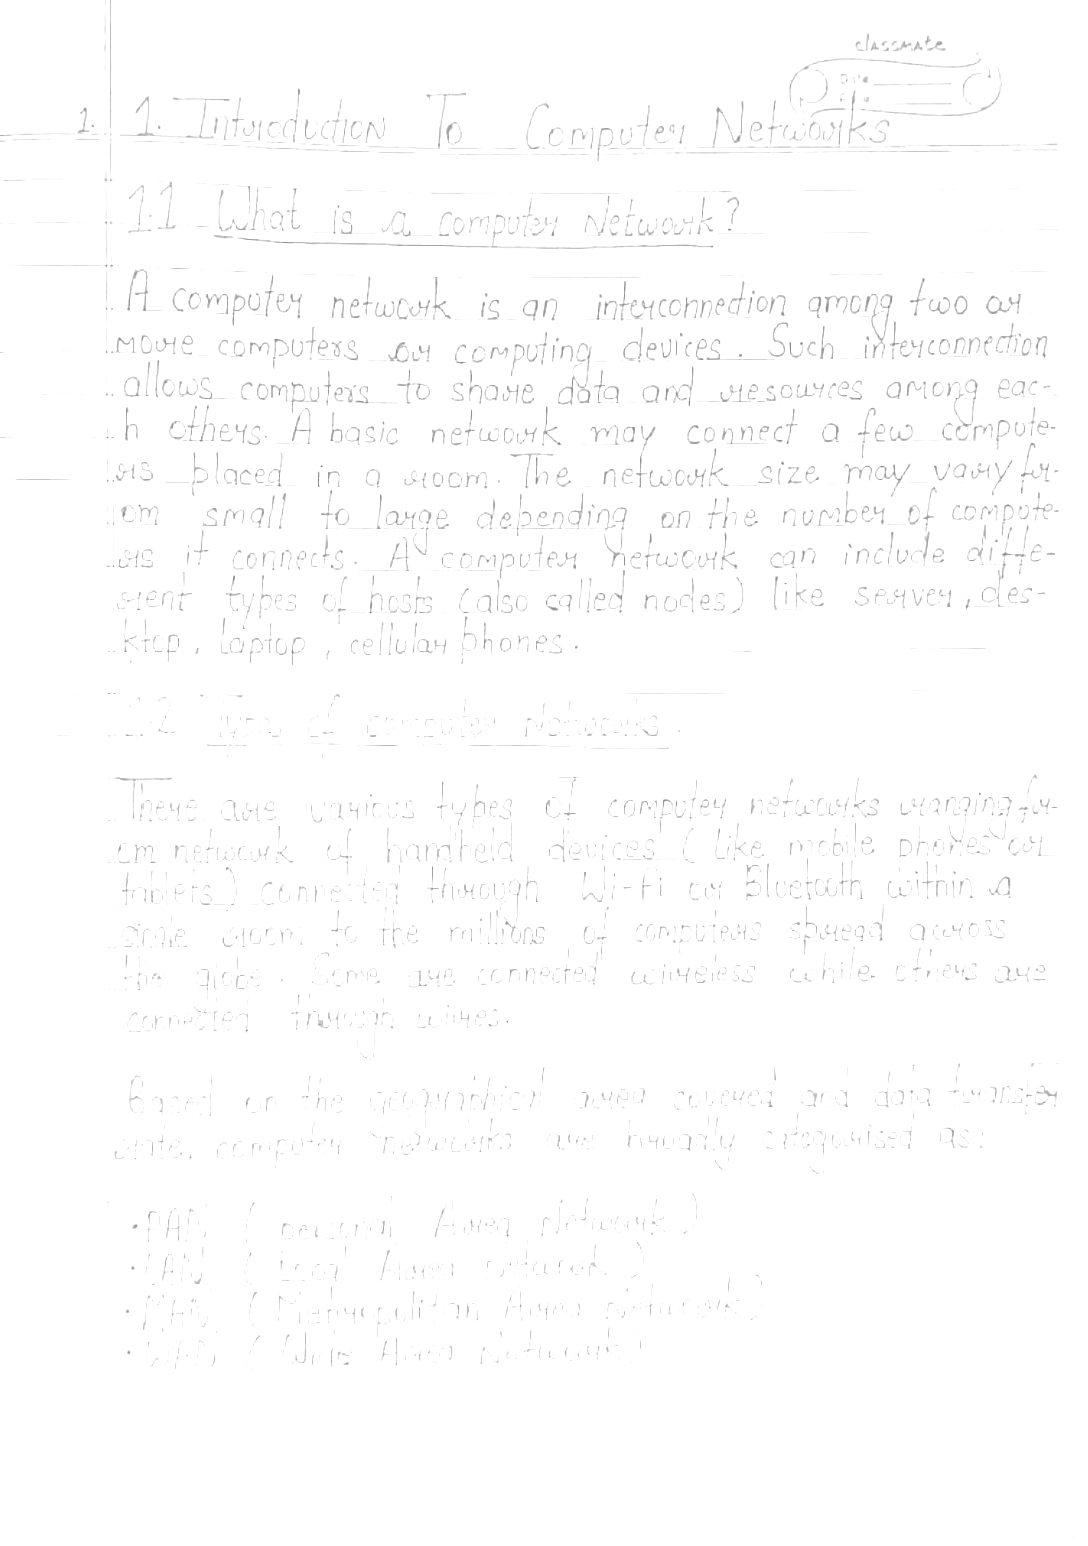 classmate
Date
Page
1. 1. Introduction To Computer Networks
1.1 What is a computer Network?
A computer network is an interconnection among two or
more computers or computing devices. Such interconnection
allows computers to share data and resources among eac-
h others. A basic network may connect a few compute-
rs placed in a room. The network size may vary fr-
om small to large depending on the number of compute-
rs it connects. A computer network can include diffe-
rent types of hosts (also called nodes) like server, des-
ktop, laptop, cellular phones.
1.2 Types of computer Networks.
There are various types of computer networks ranging fr-
om network of handheld devices (like mobile phones or
tablets) connected through Wi-Fi or Bluetooth within a
single room to the millions of computers spread across
the globe. Some are connected wireless while others are
connected through wires.
Based on the geographical area covered and data transfer
rate, computer networks are broadly categorised as:
• PAN (personal Area Network)
• LAN (Local Area network)
• MAN (Metropolitan Area Network)
• WAN (Wide Area Network)